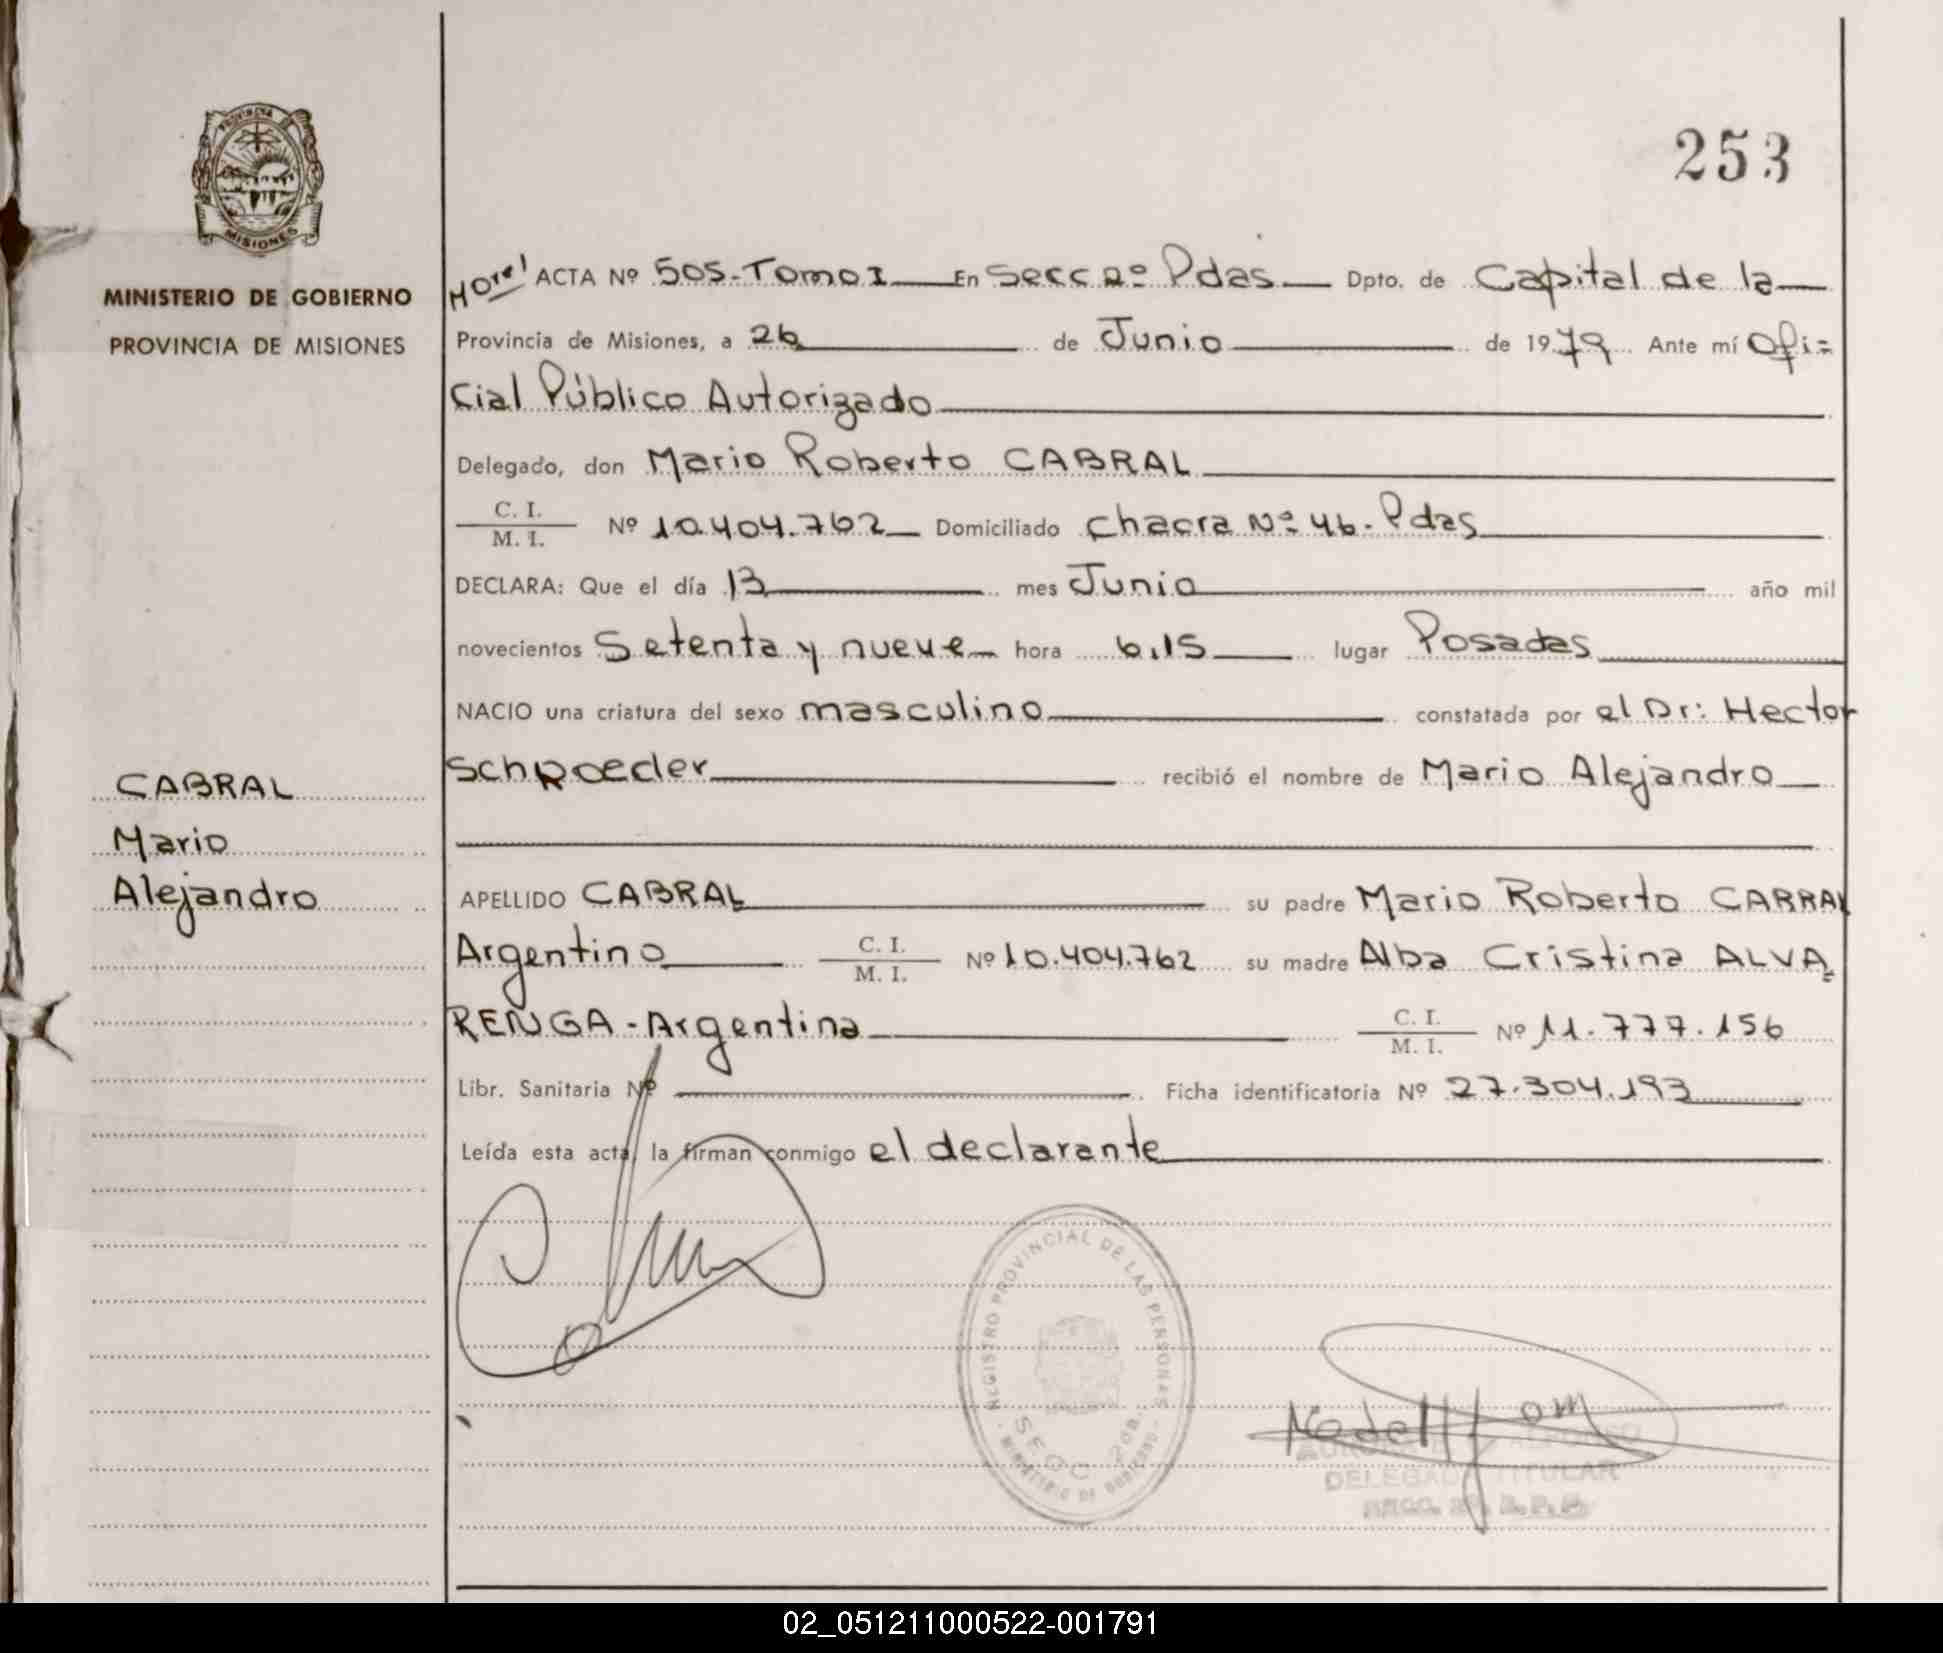 PROVINCIA DE
MISIONES
MINISTERIO DE GOBIERNO
PROVINCIA DE MISIONES
253
ACTA Nº 505-Tomo I En Secc 2º Pdas Dpto. de Capital de la
Provincia de Misiones, a 26 de Junio de 1979 Ante mí Ofi=
cial Público Autorizado
Delegado, don Mario Roberto CABRAL
C. I.
M. I. Nº 10.404.762 Domiciliado Chacra Nº 46. Pdas
DECLARA: Que el día 13 mes Junio año mil
novecientos Setenta y nueve hora 6,15 lugar Posadas
NACIO una criatura del sexo masculino constatada por el Dr: Hector
Schroeder recibió el nombre de Mario Alejandro
CABRAL
Mario
Alejandro
APELLIDO CABRAL su padre Mario Roberto CABRAL
Argentino C. I.
M. I. Nº 10.404.762 su madre Alba Cristina ALVA=
RENGA - Argentina C. I.
M. I. Nº 11.777.156
Libr. Sanitaria Nº Ficha identificatoria Nº 27.304.193
Leída esta acta, la firman conmigo el declarante
REGISTRO PROVINCIAL DE LAS PERSONAS
SECC. 2da.
MINISTERIO DE GOBIERNO
DELEGADA TITULAR
02_051211000522-001791